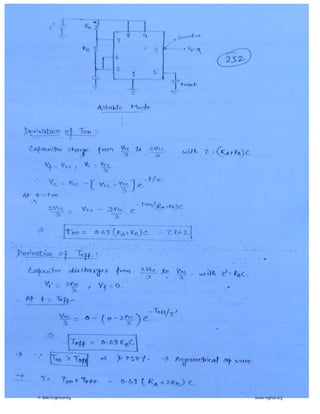 RA
8
4
7
3
RB
6
2
1
5
252
Astable Mode
Derivation of Ton :
Capacitor charge from Vcc/3 to 2Vcc/3 with τ = (RA+RB)C
Vf = Vcc , Vi = Vcc/3
∴ Vc = Vcc - [Vcc - Vcc/3] e^-t/τ
At t = ton
2Vcc/3 = Vcc - 2Vcc/3 . e^-ton/(RA+RB)C
⇒ ton = 0.69 (RA+RB)C = τ ln2
Derivation of Toff :
Capacitor discharges from 2Vcc/3 to Vcc/3 with τ' = RBC
Vi = 2Vcc/3 , Vf = 0.
At t = Toff
Vcc/3 = 0 - (0 - 2Vcc/3) e^-Toff/τ'
⇒ Toff = 0.69 RBC
∵ Ton > Toff ⇒ D > 50% ⇒ Asymmetrical sq wave
→ T = Ton + Toff = 0.69 (RA + 2RB) C
www.raghul.org